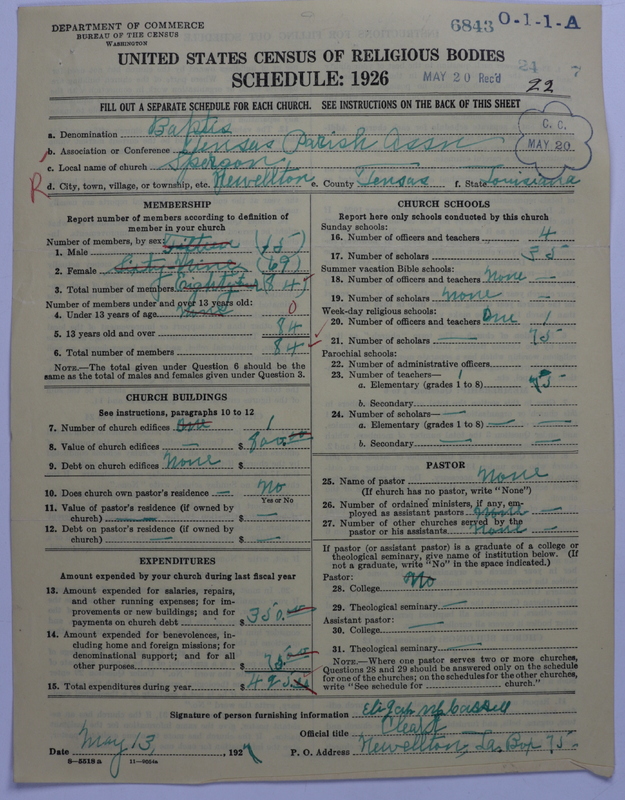 DEPARTMENT OF COMMERCE
BUREAU OF THE CENSUS
WASHINGTON
6843 O-1-1-A
UNITED STATES CENSUS OF RELIGIOUS BODIES
24 7
SCHEDULE: 1926
MAY 20 Rec'd
22
FILL OUT A SEPARATE SCHEDULE FOR EACH CHURCH. SEE INSTRUCTIONS ON THE BACK OF THIS SHEET
C. C.
MAY 20
a. Denomination Baptis
b. Association or Conference Tensas Parish Assn
c. Local name of church Spergon
R d. City, town, village, or township, etc. Newellton e. County Tensas f. State Louisiana
MEMBERSHIP
Report number of members according to definition of
member in your church
Number of members, by sex:
1. Male (15)
2. Female Sixty Nine (69)
3. Total number of members Eighty (84)
Number of members under and over 13 years old:
4. Under 13 years of age None 0
5. 13 years old and over 84
6. Total number of members 84
NOTE.—The total given under Question 6 should be
same as the total of males and females given under Question 3.
CHURCH BUILDINGS
See instructions, paragraphs 10 to 12
7. Number of church edifices One 1
8. Value of church edifices — $ 800.00
9. Debt on church edifices None $
10. Does church own pastor's residence — No
Yes or No
11. Value of pastor's residence (if owned by
church) — $ —
12. Debt on pastor's residence (if owned by
church) — $ —
EXPENDITURES
Amount expended by your church during last fiscal year
13. Amount expended for salaries, repairs,
and other running expenses; for im-
provements or new buildings; and for
payments on church debt $ 350.00
14. Amount expended for benevolences, in-
cluding home and foreign missions; for
denominational support; and for all
other purposes $ 75.00
15. Total expenditures during year $ 425.00
CHURCH SCHOOLS
Report here only schools conducted by this church
Sunday schools:
16. Number of officers and teachers 4
17. Number of scholars 35
Summer vacation Bible schools:
18. Number of officers and teachers None —
19. Number of scholars None —
Week-day religious schools:
20. Number of officers and teachers One 1
21. Number of scholars — 75
Parochial schools:
22. Number of administrative officers
23. Number of teachers— 1
a. Elementary (grades 1 to 8) 75
b. Secondary
24. Number of scholars— —
a. Elementary (grades 1 to 8) — —
b. Secondary — —
PASTOR
25. Name of pastor None
(If church has no pastor, write "None")
26. Number of ordained ministers, if any, em-
ployed as assistant pastors None —
27. Number of other churches served by the
pastor or his assistants None —
If pastor (or assistant pastor) is a graduate of a college or
theological seminary, give name of institution below. (If
not a graduate, write "No" in the space indicated.)
Pastor:
28. College No
29. Theological seminary —
Assistant pastor:
30. College —
31. Theological seminary —
NOTE.—Where one pastor serves two or more churches,
Questions 28 and 29 should be answered only on the schedule
for one of the churches; on the schedules for the other churches,
write "See schedule for church."
Signature of person furnishing information
Official title Cleark
Date May 13, 1927 P. O. Address Newellton, La. Box 75
8—5518 a 11—9054a